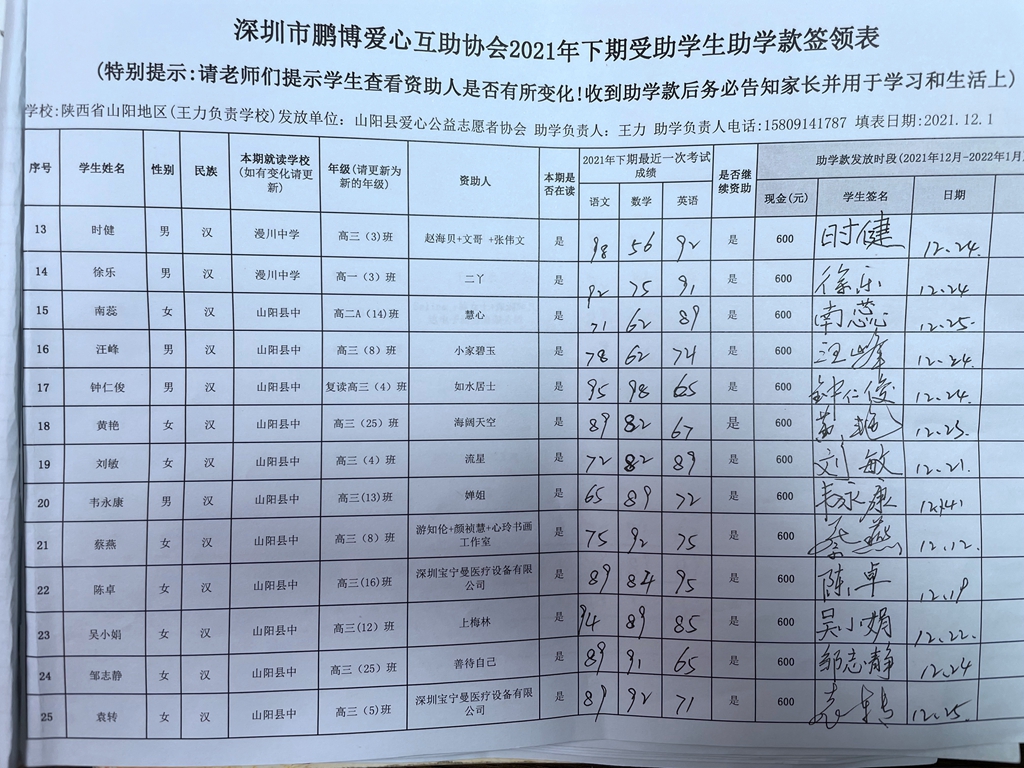 深圳市鹏博爱心互助协会2021年下期受助学生助学款签领表
(特别提示:请老师们提示学生查看资助人是否有所变化!收到助学款后务必告知家长并用于学习和生活上)
学校:陕西省山阳地区(王力负责学校)发放单位: 山阳县爱心公益志愿者协会 助学负责人: 王力 助学负责人电话:15809141787 填表日期:2021.12.1
序号 学生姓名 性别 民族 本期就读学校(如有变化请更新) 年级(请更新为新的年级) 资助人 本期是否在读 2021年下期最近一次考试成绩 是否继续资助 助学款发放时段(2021年12月-2022年1月
语文 数学 英语 现金(元) 学生签名 日期
13 时健 男 汉 漫川中学 高三(3)班 赵海贝+文哥 +张伟文 是 98 56 92 是 600 时健 12.24.
14 徐乐 男 汉 漫川中学 高一(3)班 二丫 是 92 75 91 是 600 徐乐 12.24
15 南蕊 女 汉 山阳县中 高二A(14)班 慧心 是 71 62 89 是 600 南蕊 12.25.
16 汪峰 男 汉 山阳县中 高三(8)班 小家碧玉 是 78 62 74 是 600 汪峰 12.24.
17 钟仁俊 男 汉 山阳县中 复读高三(4)班 如水居士 是 95 98 65 是 600 钟仁俊 12.24.
18 黄艳 女 汉 山阳县中 高三(25)班 海阔天空 是 89 82 67 是 600 黄艳 12.25.
19 刘敏 女 汉 山阳县中 高三(4)班 流星 是 72 82 89 是 600 刘敏 12.21.
20 韦永康 男 汉 山阳县中 高三(13)班 婵姐 是 65 89 72 是 600 韦永康
21 蔡燕 女 汉 山阳县中 高三(8)班 游知伦+颜祯慧+心玲书画工作室 是 75 92 75 是 600 蔡燕 12.12.
22 陈卓 女 汉 山阳县中 高三(16)班 深圳宝宁曼医疗设备有限公司 是 89 84 95 是 600 陈卓 12.19
23 吴小娟 女 汉 山阳县中 高三(12)班 上梅林 是 94 89 85 是 600 吴小娟 12.22.
24 邹志静 女 汉 山阳县中 高三(25)班 善待自己 是 89 91 65 是 600 邹志静 12.24
25 袁转 女 汉 山阳县中 高三(5)班 深圳宝宁曼医疗设备有限公司 是 89 92 71 是 600 袁转 12.25.